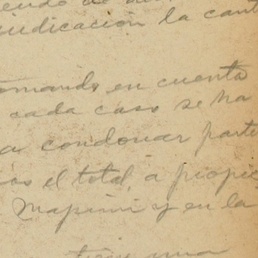 judicación la cant
tomando en cuenta
cada caso se ha
a condonar parte
el total, a propie
Mapimí y en la